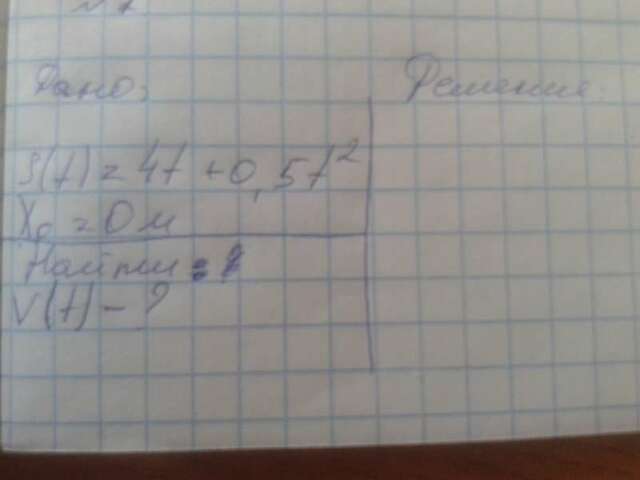 Дано:
Решение:
S(t) = 4t + 0,5t²
X₀ = 0 м
Найти:
V(t) - ?